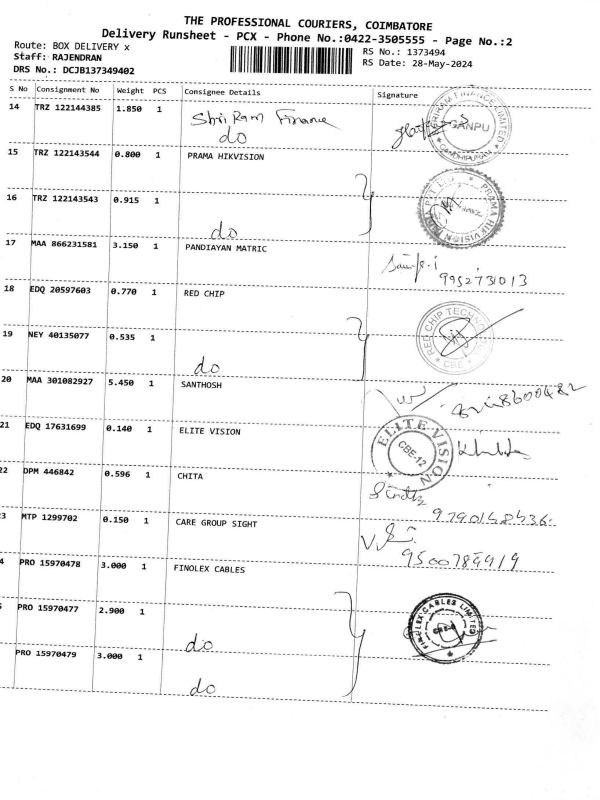 THE PROFESSIONAL COURIERS, COIMBATORE
Delivery Runsheet - PCX - Phone No.:0422-3505555 - Page No.:2
Route: BOX DELIVERY x
RS No.: 1373494
Staff: RAJENDRAN
RS Date: 28-May-2024
DRS No.: DCJB137349402
S No Consignment No Weight PCS Consignee Details Signature
14 TRZ 122144385 1.850 1 Shri Ram Finance
do
SHRIRAM FINANCE LIMITED
GANPU
GANDHIPURAM
15 TRZ 122143544 0.800 1 PRAMA HIKVISION
16 TRZ 122143543 0.915 1
do
PRAMA HIKVISION
17 MAA 866231581 3.150 1 PANDIAYAN MATRIC
9952731013
18 EDQ 20597603 0.770 1 RED CHIP
RED CHIP
CBE
19 NEY 40135077 0.535 1
do
20 MAA 301082927 5.450 1 SANTHOSH
21 EDQ 17631699 0.140 1 ELITE VISION
ELITE VISION
CBE-12
22 DPM 446842 0.596 1 CHITA
23 MTP 1299702 0.150 1 CARE GROUP SIGHT
4 PRO 15970478 3.000 1 FINOLEX CABLES
5 PRO 15970477 2.900 1
do
FINOLEX CABLES LIMITED
PRO 15970479 3.000 1
do